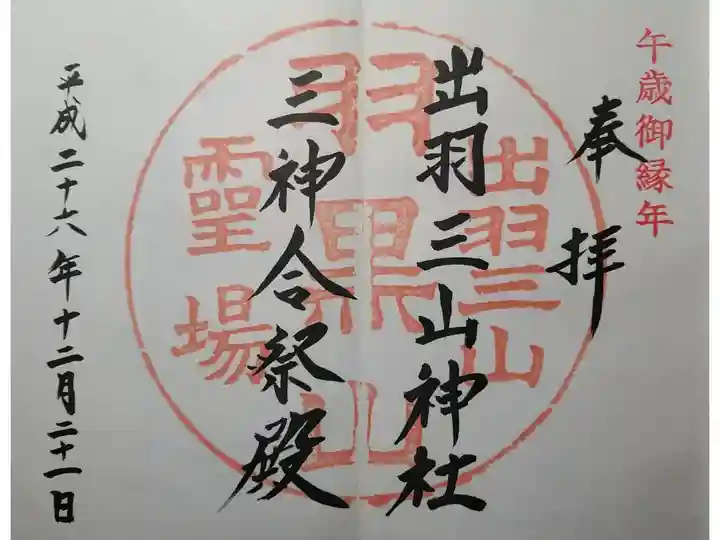 午歳御縁年
奉拝
出羽三山神社
三神合祭殿
平成二十六年十二月二十一日
出羽三山
羽黒山
霊場